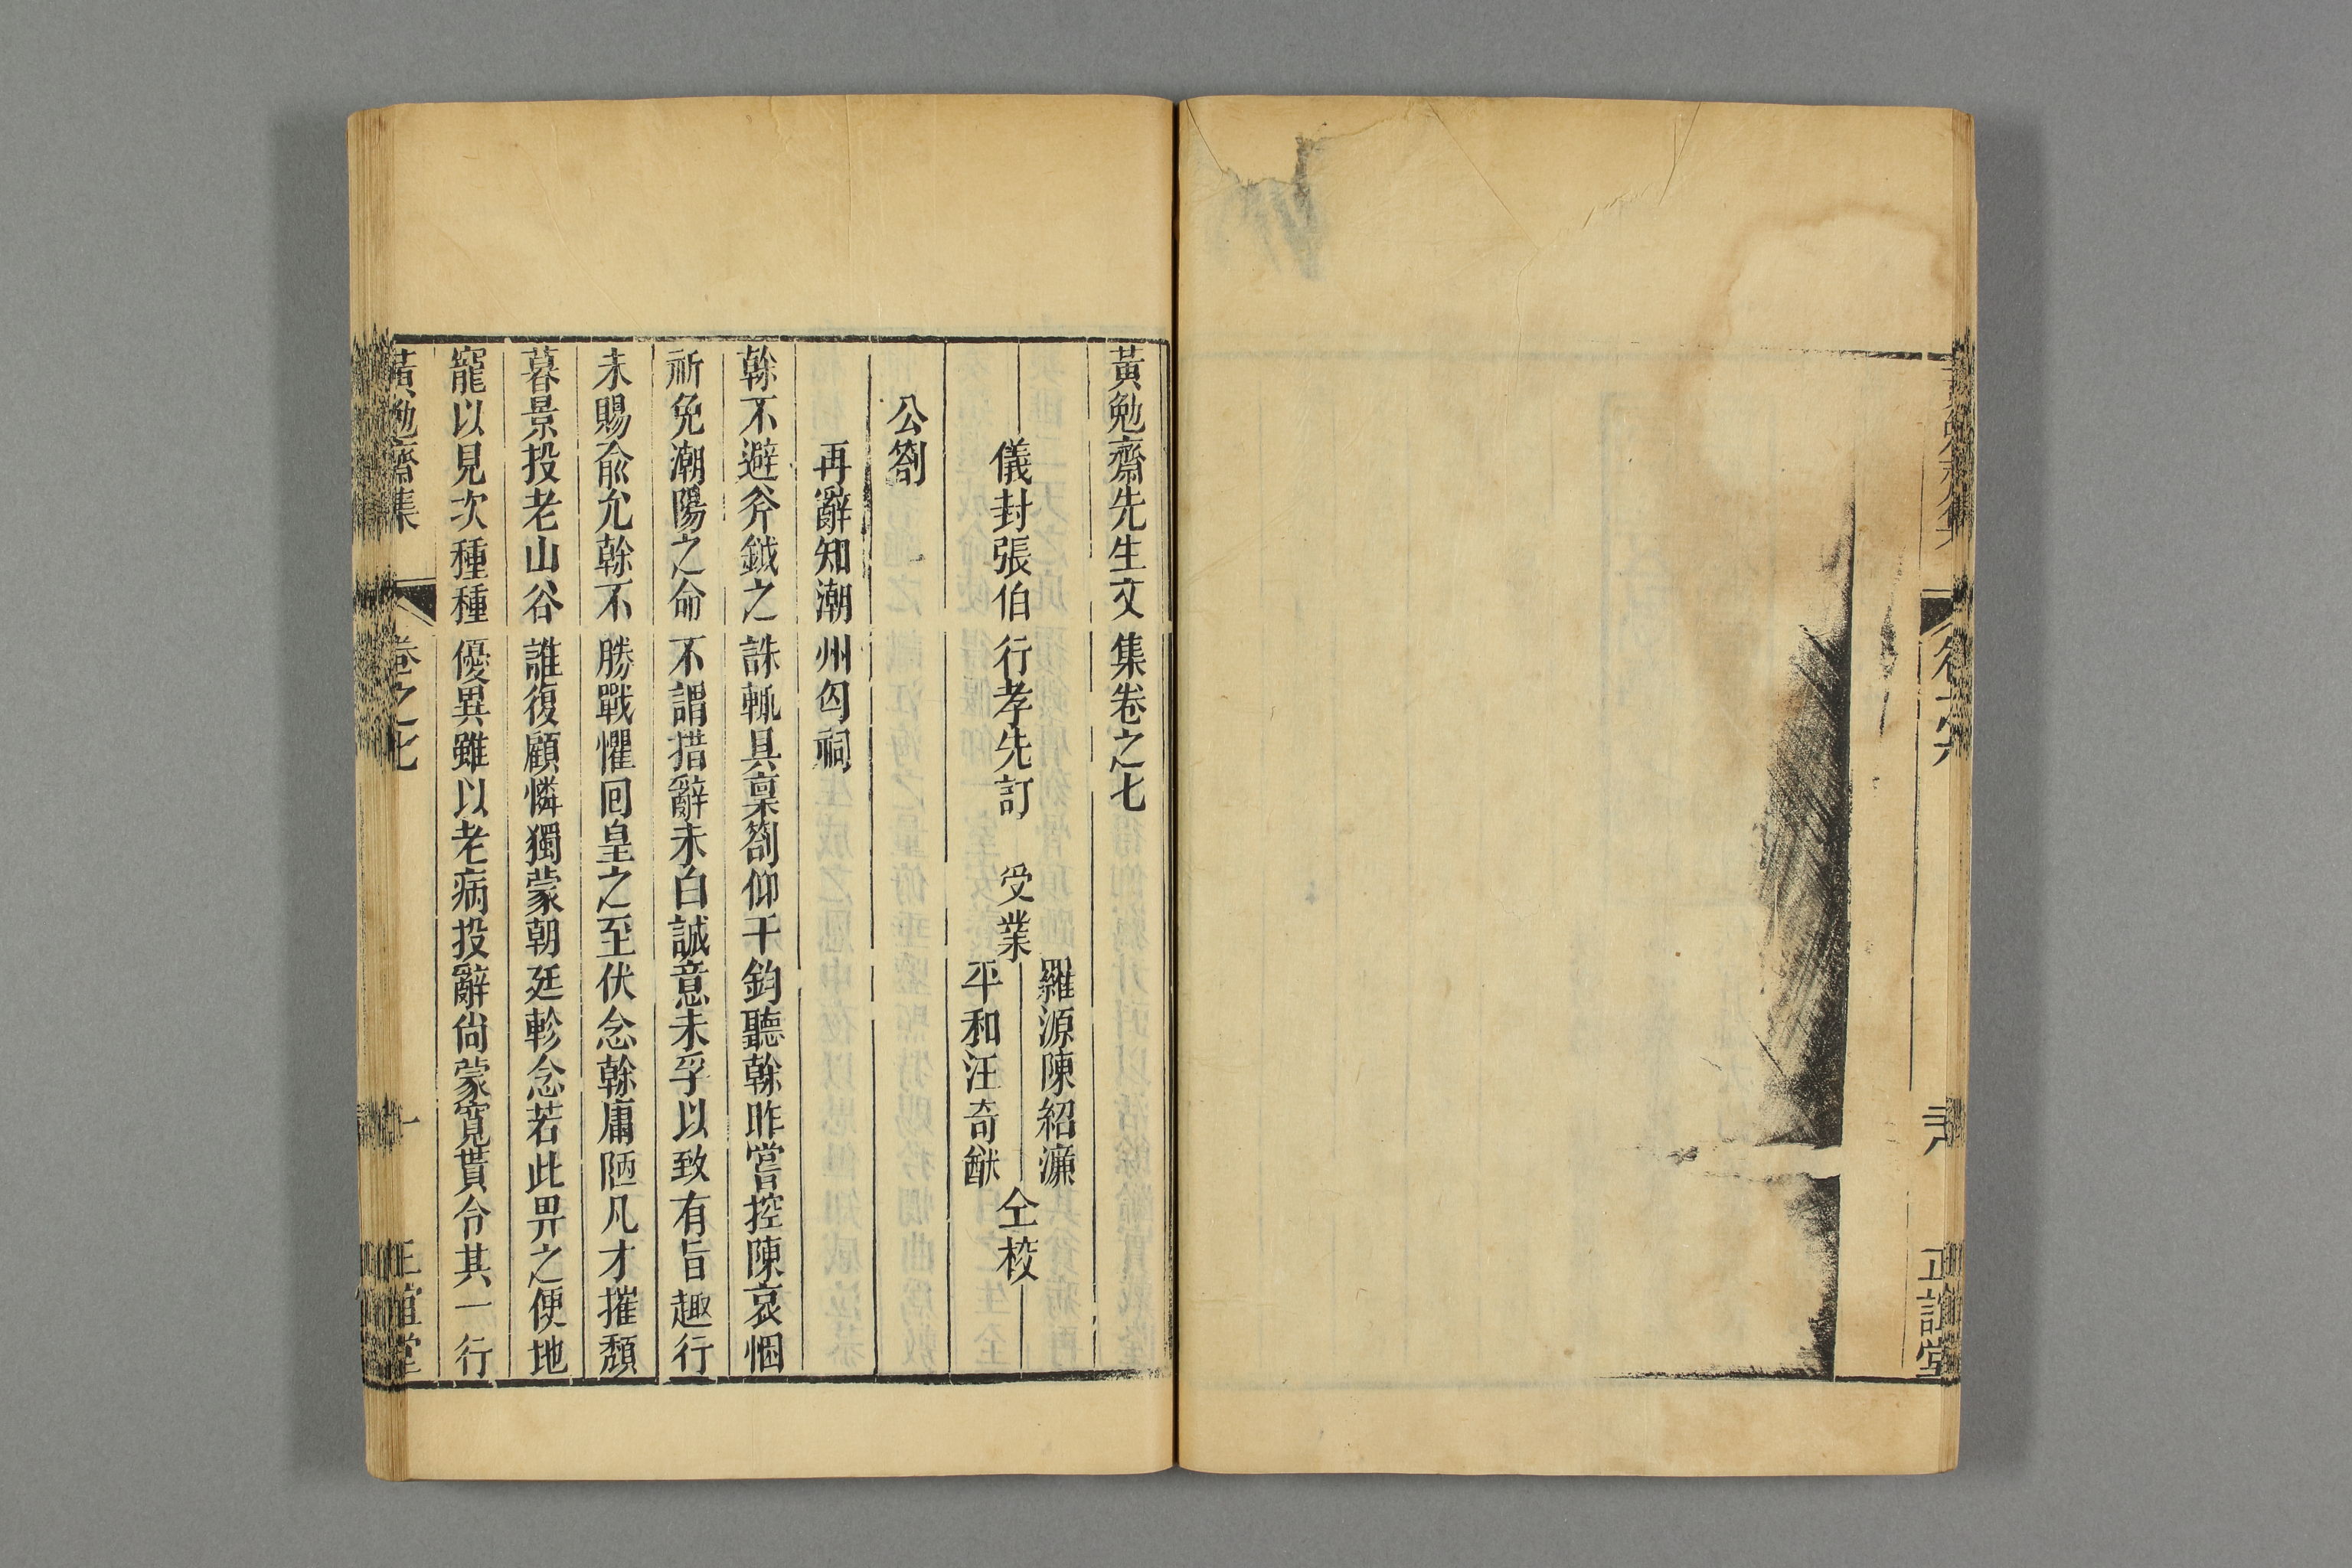 正誼堂
黃勉齋先生文集卷之七
儀封張伯行孝先訂 受業
羅源陳紹濂
平和汪奇猷
仝校
公劄
再辭知潮州匄祠
榦不避斧鉞之誅輒具稟劄仰干鈞聽榦昨嘗控陳哀悃
祈免潮陽之命不謂措辭未白誠意未孚以致有旨趣行
未賜俞允榦不勝戰懼回皇之至伏念榦庸陋凡才摧頹
暮景投老山谷誰復顧憐獨蒙朝廷軫念若此畀之便地
寵以見次種種優異雖以老病投辭尙蒙寬貰令其一行
黃勉齋集 卷之七 一 正誼堂